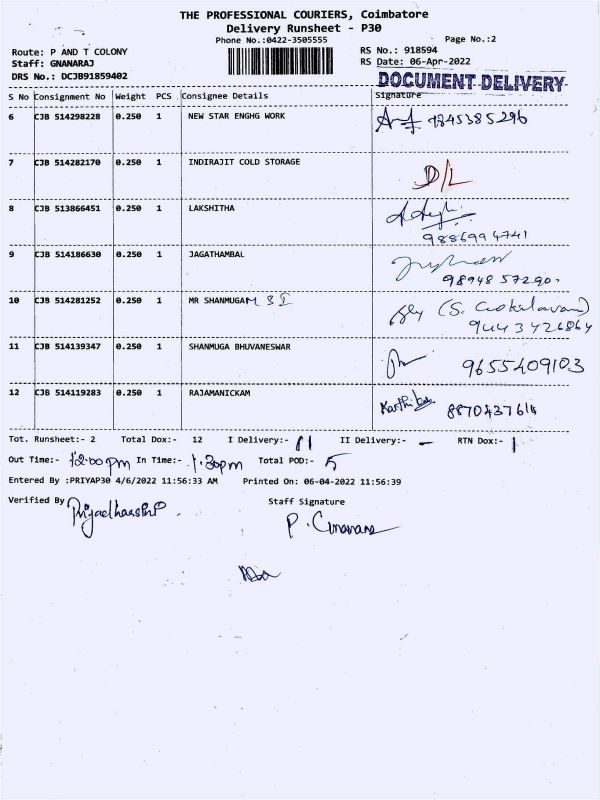 THE PROFESSIONAL COURIERS, Coimbatore
Delivery Runsheet - P30
Phone No.:0422-3505555 Page No.:2
Route: P AND T COLONY RS No.: 918594
Staff: GNANARAJ RS Date: 06-Apr-2022
DRS No.: DCJB91859402 DOCUMENT DELIVERY
S No Consignment No Weight PCS Consignee Details Signature
6 CJB 514298228 0.250 1 NEW STAR ENGHG WORK 9845385296
7 CJB 514282170 0.250 1 INDIRAJIT COLD STORAGE D/L
8 CJB 513866451 0.250 1 LAKSHITHA
9886994741
9 CJB 514186630 0.250 1 JAGATHAMBAL
98948 57290.
10 CJB 514281252 0.250 1 MR SHANMUGAM
9443426864
11 CJB 514139347 0.250 1 SHANMUGA BHUVANESWAR 9655409103
12 CJB 514119283 0.250 1 RAJAMANICKAM
Tot. Runsheet:- 2 Total Dox:- 12 I Delivery:- 11 II Delivery:- - RTN Dox:- 1
Out Time:- 12.00pm In Time:- 1.30pm Total POD:- 5
Entered By :PRIYAP30 4/6/2022 11:56:33 AM Printed On: 06-04-2022 11:56:39
Verified By Staff Signature